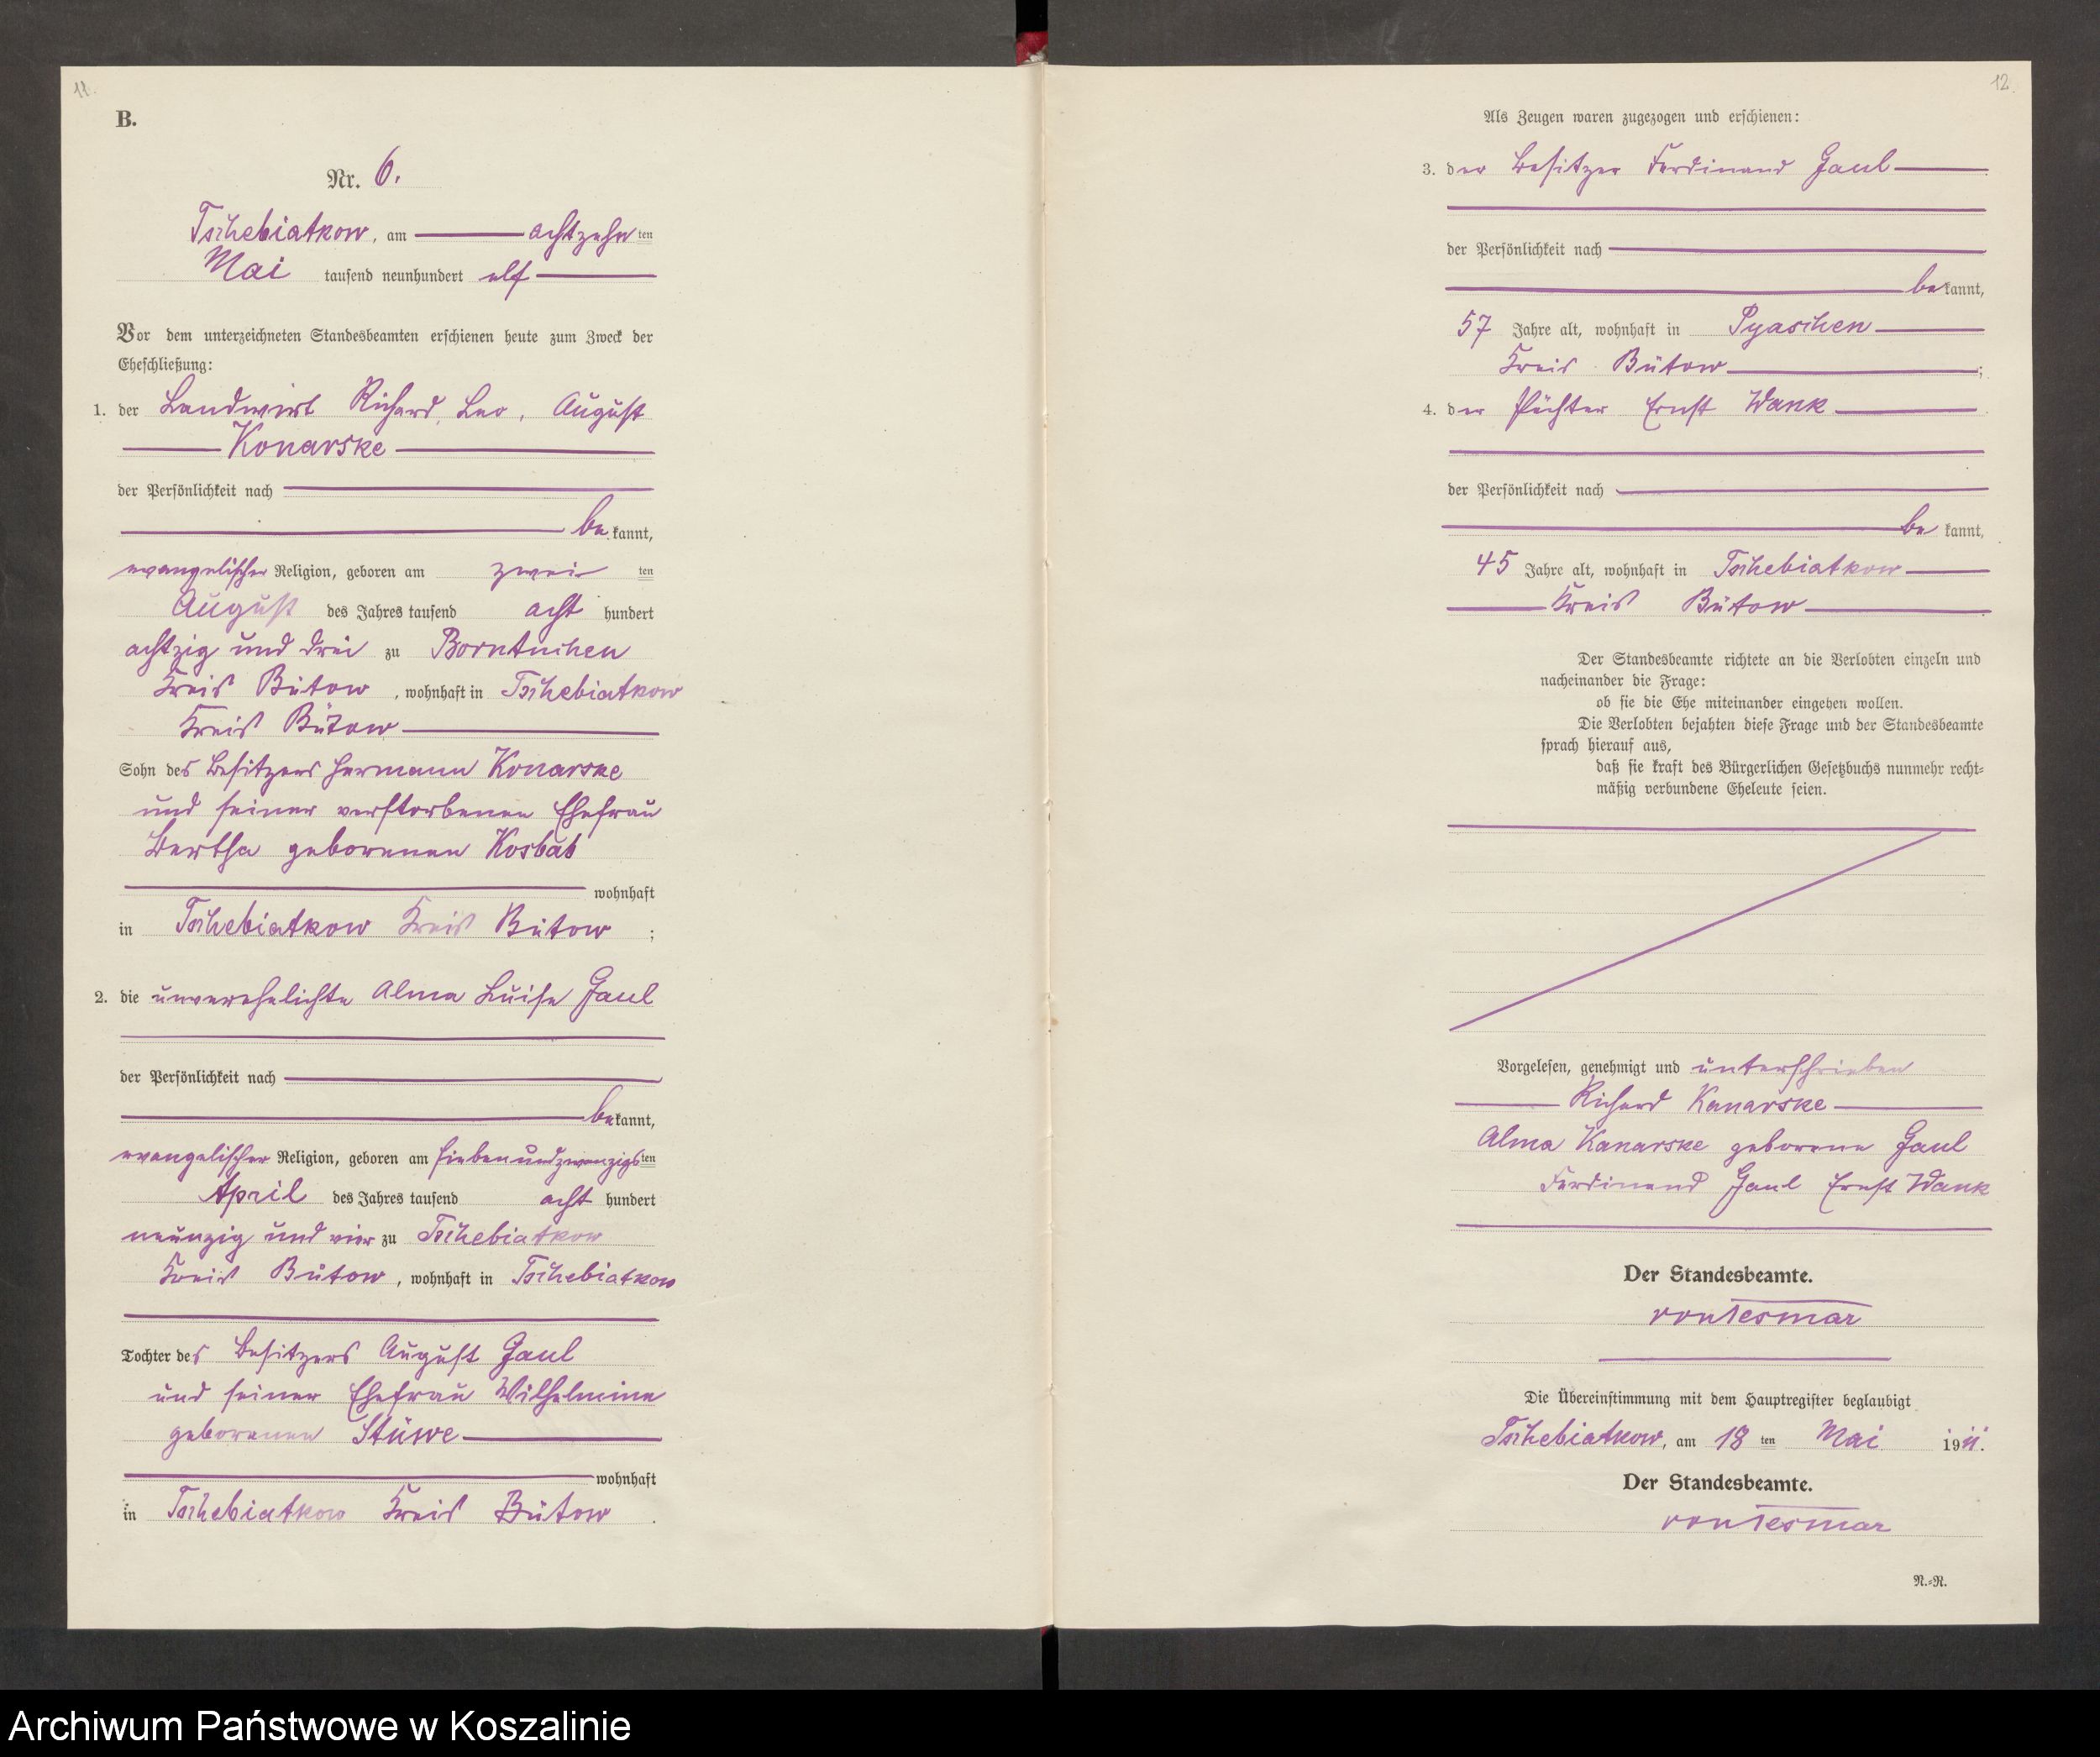 11.
B.
Nr. 6.
Tschebiatkow, am achtzehn ten
Mai tausend neunhundert elf
Vor dem unterzeichneten Standesbeamten erschienen heute zum Zweck der
Eheschließung:
1. der Landwirt Richard, Leo, August
Konarske
der Persönlichkeit nach
be kannt,
evangelischer Religion, geboren am zwei ten
August des Jahres tausend acht hundert
achtzig und drei zu Borntuchen
Kreis Bütow, wohnhaft in Tschebiatkow
Kreis Bütow
Sohn des Besitzers Hermann Konarske
und seiner verstorbenen Ehefrau
Bertha geborenen Kosbab
wohnhaft
in Tschebiatkow Kreis Bütow ;
2. die unverehelichte Alma Luise Gaul
der Persönlichkeit nach
be kannt,
evangelischer Religion, geboren am siebenundzwanzigsten
April des Jahres tausend acht hundert
neunzig und vier zu Tschebiatkow
Kreis Bütow, wohnhaft in Tschebiatkow
Tochter des Besitzers August Gaul
und seiner Ehefrau Wilhelmine
geborenen Stüwe
wohnhaft
in Tschebiatkow Kreis Bütow .
12.
Als Zeugen waren zugezogen und erschienen:
3. der Besitzer Ferdinand Gaul
der Persönlichkeit nach
be kannt,
57 Jahre alt, wohnhaft in Pyaschen
Kreis Bütow ;
4. der Pächter Ernst Wank
der Persönlichkeit nach
be kannt,
45 Jahre alt, wohnhaft in Tschebiatkow
Kreis Bütow
Der Standesbeamte richtete an die Verlobten einzeln und
nacheinander die Frage:
ob sie die Ehe miteinander eingehen wollen.
Die Verlobten bejahten diese Frage und der Standesbeamte
sprach hierauf aus,
daß sie kraft des Bürgerlichen Gesetzbuchs nunmehr recht-
mäßig verbundene Eheleute seien.
Vorgelesen, genehmigt und unterschrieben
Richard Kanarske
Alma Kanarske geborene Gaul
Ferdinand Gaul Ernst Wank
Der Standesbeamte.
von Tesmar
Die Übereinstimmung mit dem Hauptregister beglaubigt
Tschebiatkow, am 18 ten Mai 1911.
Der Standesbeamte.
von Tesmar
N.-N.
Archiwum Państwowe w Koszalinie